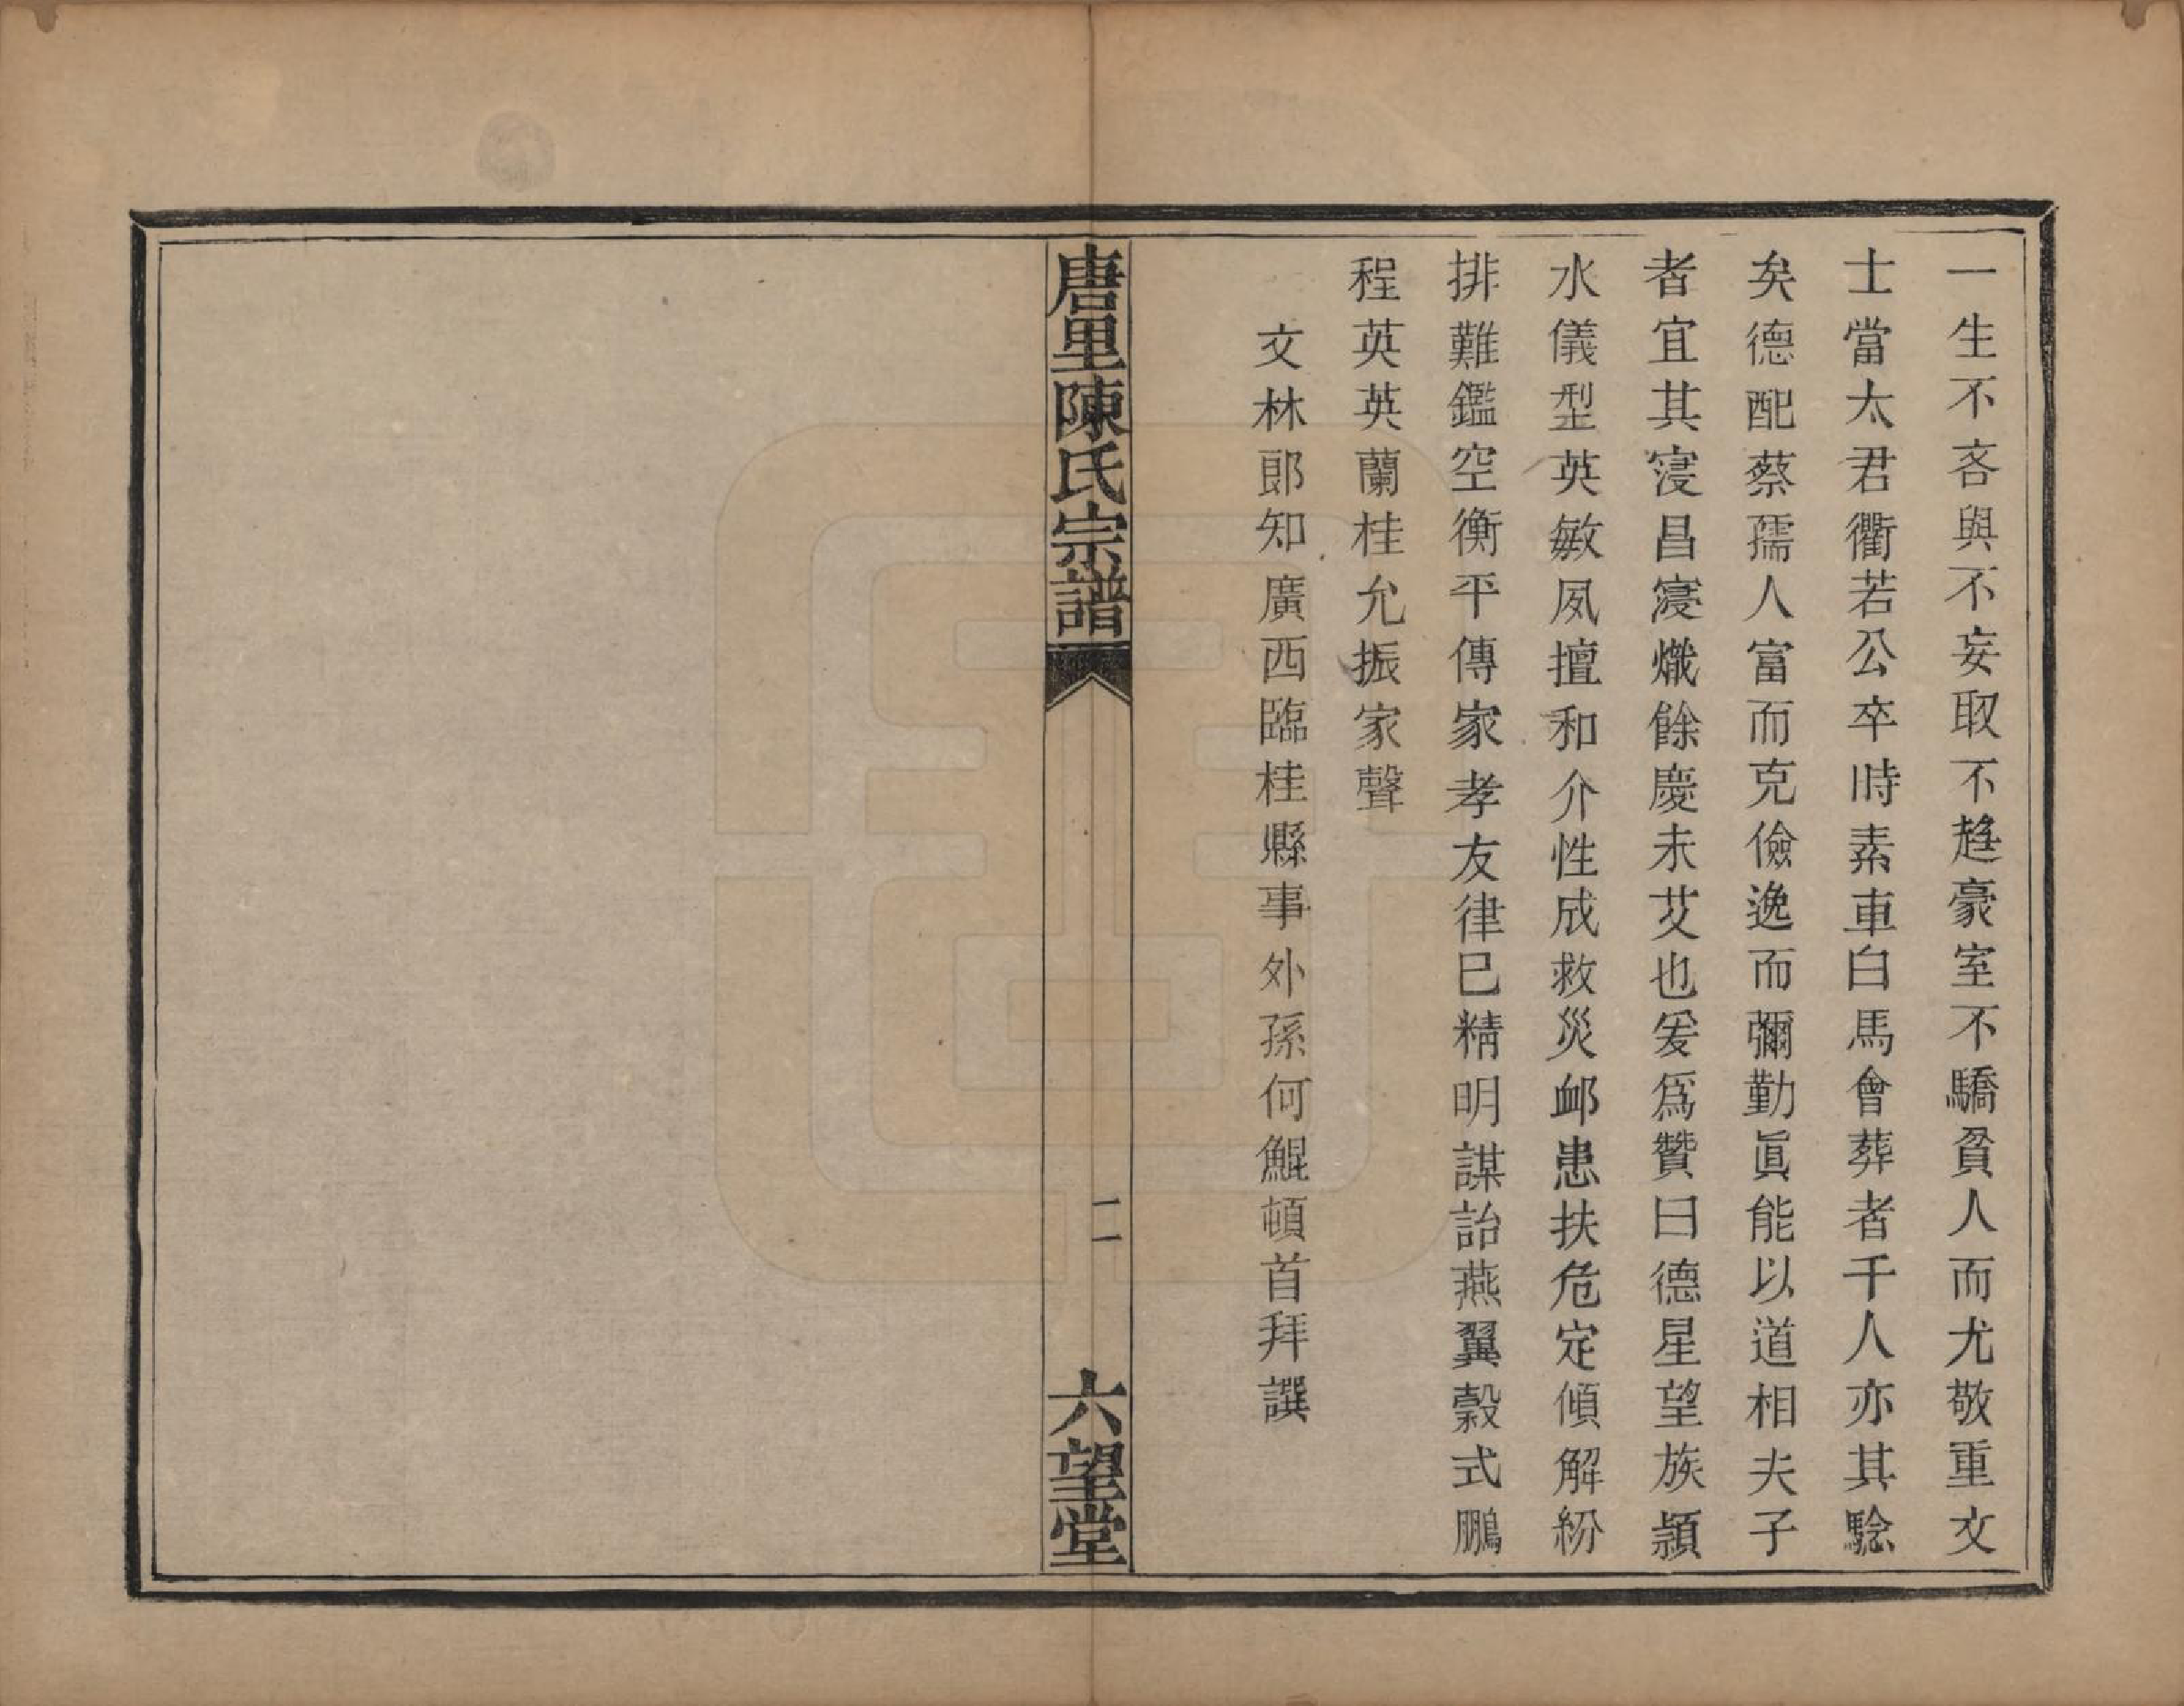 一生不吝與不妄取不趨豪室不驕貧人而尤敬重文
士當太君衢若公卒時素車白馬會葬者千人亦其騐
矣德配蔡孺人富而克儉逸而彌勤眞能以道相夫子
者宜其寖昌寖熾餘慶未艾也爰爲贊曰德星望族潁
水儀型英敏夙擅和介性成救災卹患扶危定傾解紛
排難鑑空衡平傳家孝友律已精明謀詒燕翼穀式鵬
程英英蘭桂允振家聲
文林郎知廣西臨桂縣事外孫何鯤頓首拜譔
唐里陳氏宗譜
二
六望堂